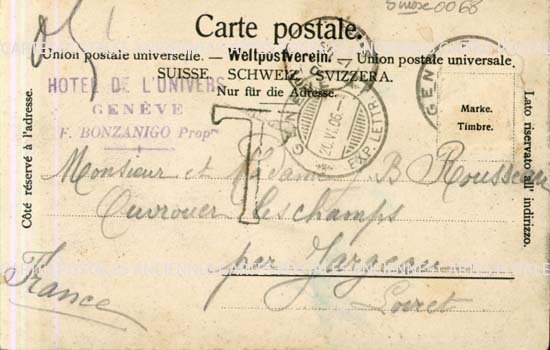 Suisse0068
Carte postale.
Union postale universelle. — Weltpostverein. — Union postale universale.
SUISSE. SCHWEIZ. SVIZZERA.
Nur für die Adresse.
HOTEL DE L'UNIVERS
GENÈVE
F. BONZANIGO Propre
Côté réservé à l'adresse.
Lato riservato all' indirizzo.
Marke.
Timbre.
GENÈVE
20.VI.06.
EXP. LETTR.
GENÈVE
T
Monsieur et Madame B Rousseau
Ouvrouer les champs
par Jargeau
Loiret
France